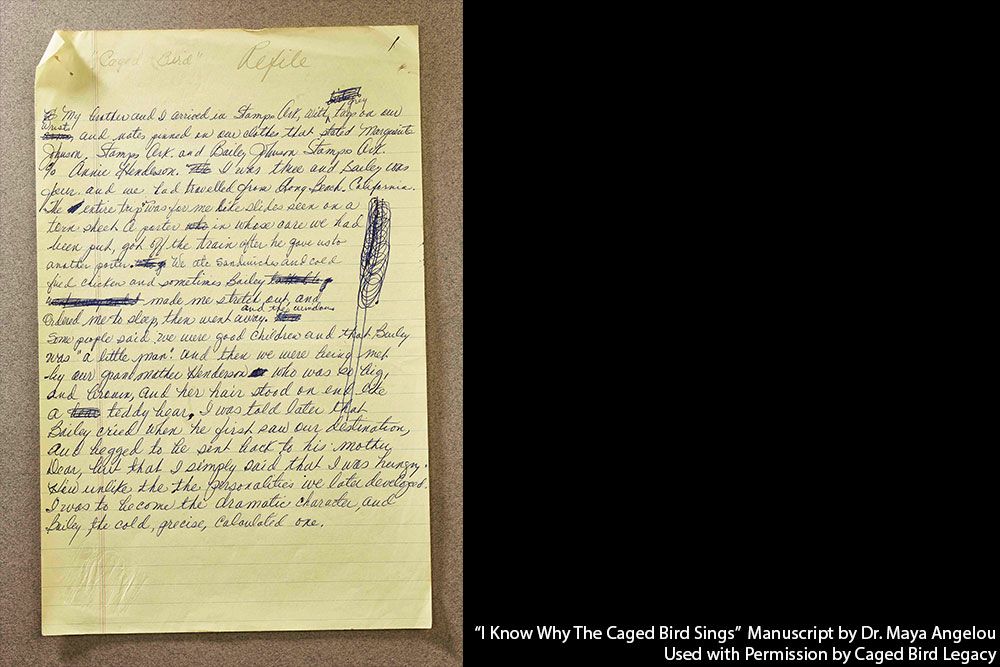 "Caged Bird" Refile
1
My brother and I arrived in Stamps Ark, with grey tags on our
wrist, and notes pinned on our clothes that stated Marguerite
Johnson, Stamps Ark. and Bailey Johnson Stamps Ark.
c/o Annie Henderson. I was three and Bailey was
four. and we had travelled from Long Beach. California.
The entire trip was for me like slides seen on a
torn sheet A porter in whose care we had
been put, got off the train after he gave us to
another porter. We ate sandwiches and cold
fried chicken and sometimes Bailey
made me stretch out, and
and the
Ordered me to sleep, then went away.
Some people said we were good children and that Bailey
was "a little man". and then we were being met
by our grand mother Henderson who was so big,
and brown, and her hair stood on end like
a teddy bear, I was told later that
Bailey cried when he first saw our destination,
and begged to be sent back to his mother
Dear, but that I simply said that I was hungry.
How unlike the the personalities we later developed.
I was to become the dramatic character, and
Bailey the cold, precise, calculated one.
"I Know Why The Caged Bird Sings" Manuscript by Dr. Maya Angelou
Used with Permission by Caged Bird Legacy